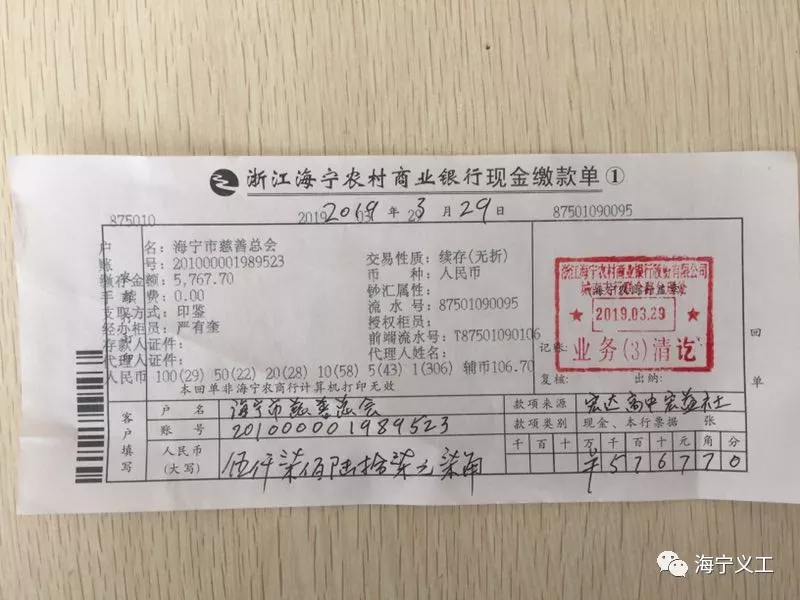 浙江海宁农村商业银行现金缴款单①
875010 2019 03 29 87501090095
2019 年 3 月 29 日
户 名：海宁市慈善总会
账 号：201000001989523 交易性质：续存(无折)
缴存金额：5,767.70 币 种：人民币
手 续 费：0.00 钞汇属性：
支取方式：印鉴 流 水 号：87501090095
经办柜员：严有奎 授权柜员：
存款人证件： 前端流水号：T87501090106
代理人证件： 代理人姓名：
人民币 100(29) 50(22) 20(28) 10(58) 5(43) 1(306) 辅币106.70
本回单非海宁农商行计算机打印无效
浙江海宁农村商业银行股份有限公司
2019.03.29
业务(3)清讫
记账：
复核： 出纳：
回单
客户填写
户 名 海宁市慈善总会 款项来源 宏达高中宏益社
账 号 201000001989523 款项类别 现金、本行票据 张
人民币(大写) 伍仟柒佰陆拾柒元柒角
千 百 十 万 千 百 十 元 角 分
羊 5 7 6 7 7 0
海宁义工